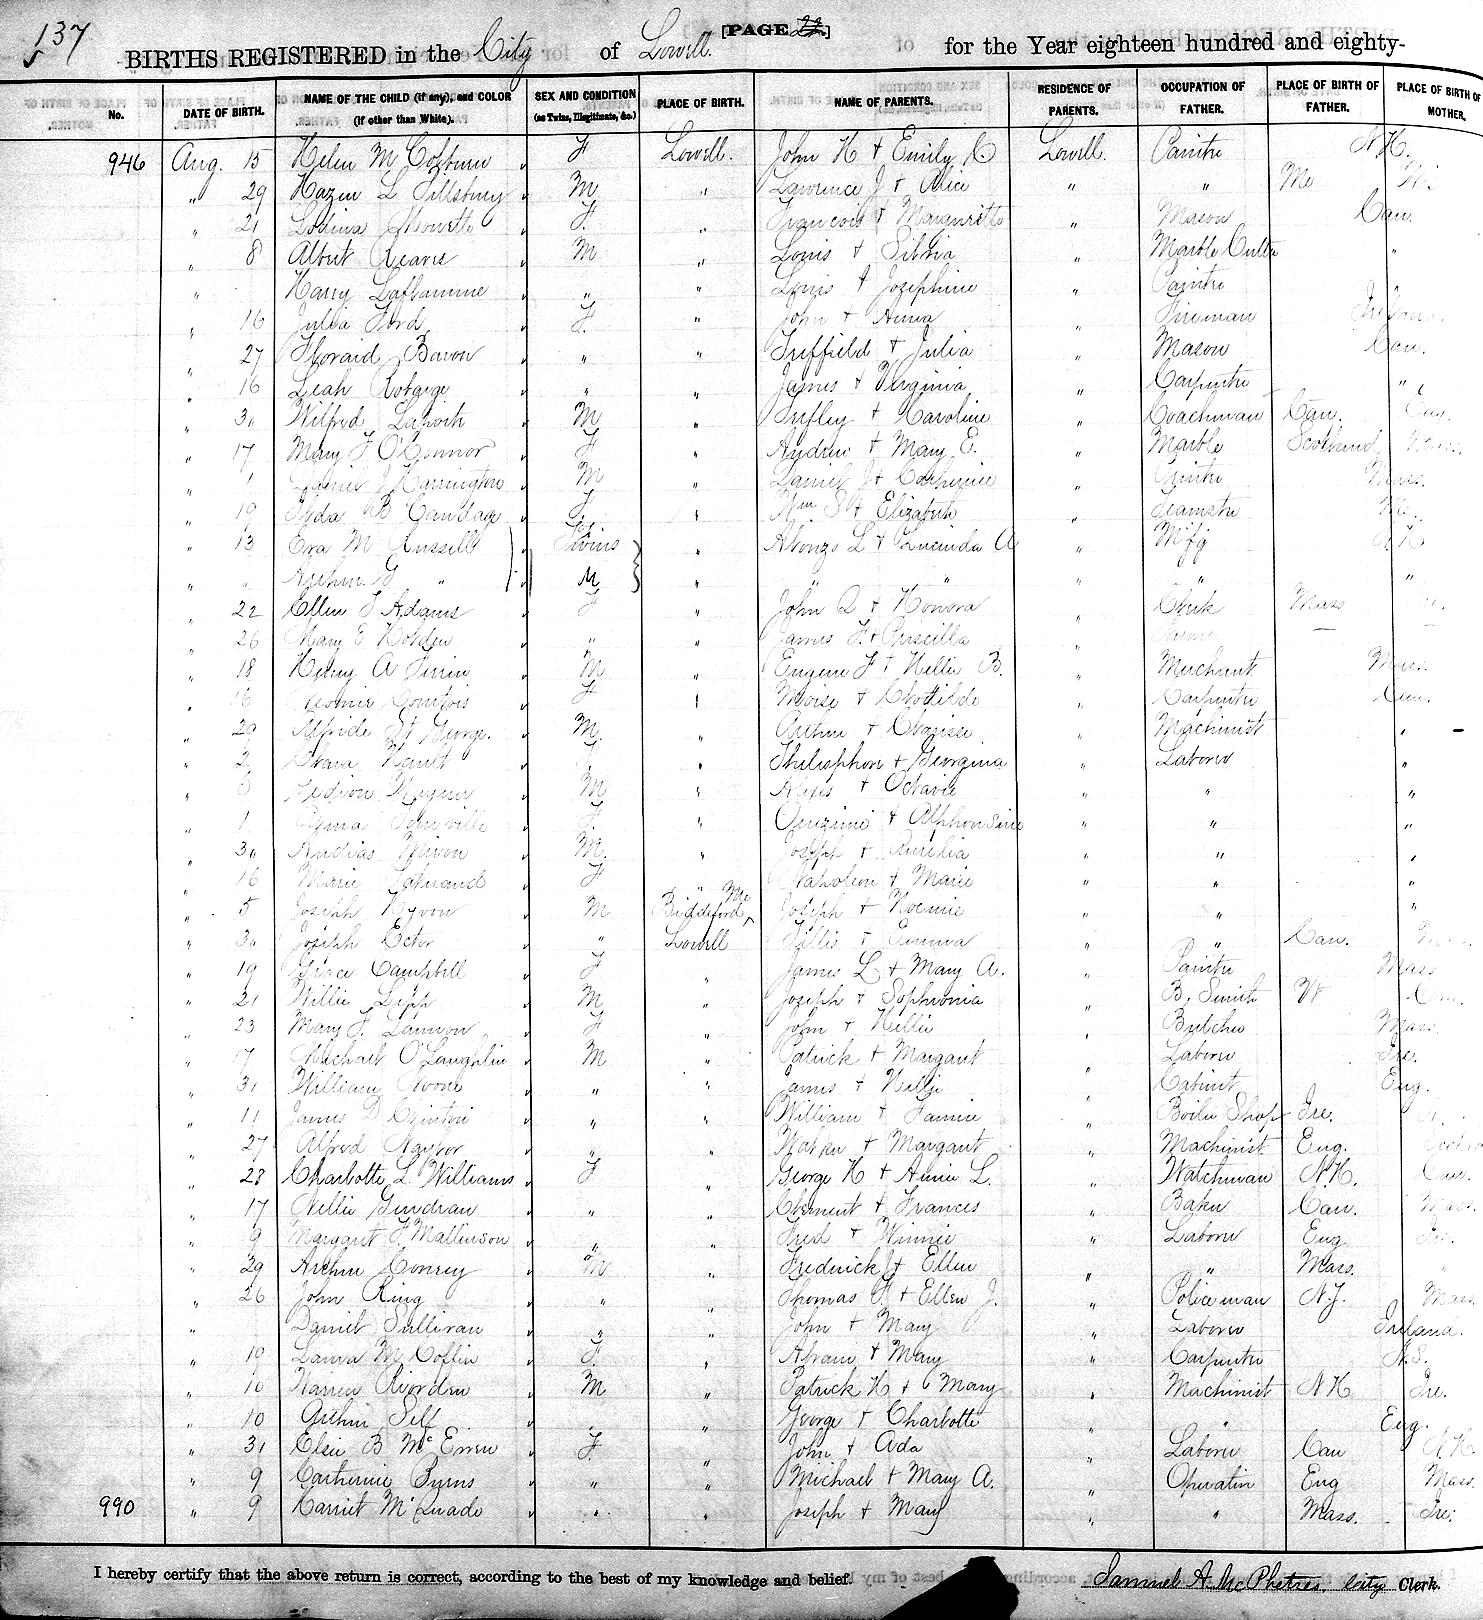 137
[PAGE 22.]
BIRTHS REGISTERED in the City of Lowell. for the Year eighteen hundred and eighty-
No. DATE OF BIRTH. NAME OF THE CHILD (if any), and COLOR (if other than White). SEX AND CONDITION (as Twins, Illegitimate, &c.) PLACE OF BIRTH. NAME OF PARENTS. RESIDENCE OF PARENTS. OCCUPATION OF FATHER. PLACE OF BIRTH OF FATHER. PLACE OF BIRTH OF MOTHER.
946 Aug. 15 Helen M Colburn F Lowell. John H + Emily C Lowell. Painter N.H.
" 29 Hazen L Pillsbury M " Lawrence J + Alice " " Me
" 21 F. " Francois + Marguritte " Mason Can.
" 8 Albert M " Louis + " Marble Cutter "
" Harry Laflamme " " Louis + Josephine " Painter "
" 16 Julia Ford F. " John + Anna " Fireman Ireland.
" 27 Baron " " + Julia " Mason Can.
" 16 Leah " " James + Virginia " Carpenter "
" 30 Wilfred M " Trifley + Caroline " Coachman Can.
" 17 Mary F O'Connor F " Andrew + Mary E. " Marble Scotland
" 1 Daniel J Harrington M " Daniel J + Catherine " Painter Mass.
" 19 B Candage F. " Wm S + Elizabeth " Teamster Me.
" 13 Eva M Russell Twins " Alonzo L + Lucinda A " Mfg N H
" " Arthur G " M " " " " " "
" 22 Ellen T Adams F " John Q + Honora " Clerk Mass Ire.
" 26 Mary E Holden " " James F. + Priscilla " —
" 18 Henry A M " Eugene F + Nellie B. " Merchant Mass.
" 16 Courtois F " Moise + Clotilde " Carpenter Can.
" 29 Alfride St George. M. " Arthur + Clarisse " Machinist "
" 2 Clara Nault F. " + Georgina " Laborer "
" 6 M " Alexis + Octavie " " "
" 1 F " + Alphonsine " " "
" 30 M. " Joseph + Aurelia " " "
" 16 Marie F " Napoleon + Marie " " "
" 5 Joseph M Biddeford, Me Joseph + Noemie " " "
" 30 Joseph Ector " Lowell + Emma " " Can.
" 19 Grace Campbell F " James L + Mary A. " Painter Mass
" 21 Willie M " Joseph + Sophronia " B. Smith Can.
" 23 Mary F. Lannon F " John + Nellie " Butcher Mass.
" 17 Michael O'Laughlin M " Patrick + Margaret " Laborer Ire.
" 31 William " " James + Nellie " Cabinet Eng.
" 11 James D Clinton " " William + Fannie " Boiler Shop Ire.
" 27 Alfred Naylor " " + Margaret " Machinist Eng.
" 28 Charlotte L Williams F " George H + Annie L. " Watchman N.H. Can.
" 17 Nellie Gendran " " Clement + Frances " Baker Can. Mass.
" 9 Margaret F Mallinson " " Fred + Winnie " Laborer Eng Ire.
" 29 Arthur Conrey M " Frederick J + Ellen " " Mass. "
" 26 John King " " Thomas F + Ellen J. " Policeman N.J. Mass
" Daniel Sullivan " " John + Mary " Laborer Ireland.
" 19 Laura M Coffin F. " Abram + Mary " Carpenter N.S.
" 10 Riorden M " Patrick H + Mary " Machinist N H Ire.
" 10 Arthur Self " George + Charlotte " " Eng.
" 31 Elsie B McEwen F. " John + Ada " Laborer Can N H
" 9 Catherine Byrns " " Michael + Mary A. " Operative Eng Mass
990 " 9 Harriet McQuade " " Joseph + Mary " " Mass. Ire.
I hereby certify that the above return is correct, according to the best of my knowledge and belief.
Samuel A. McPhetres. City Clerk.